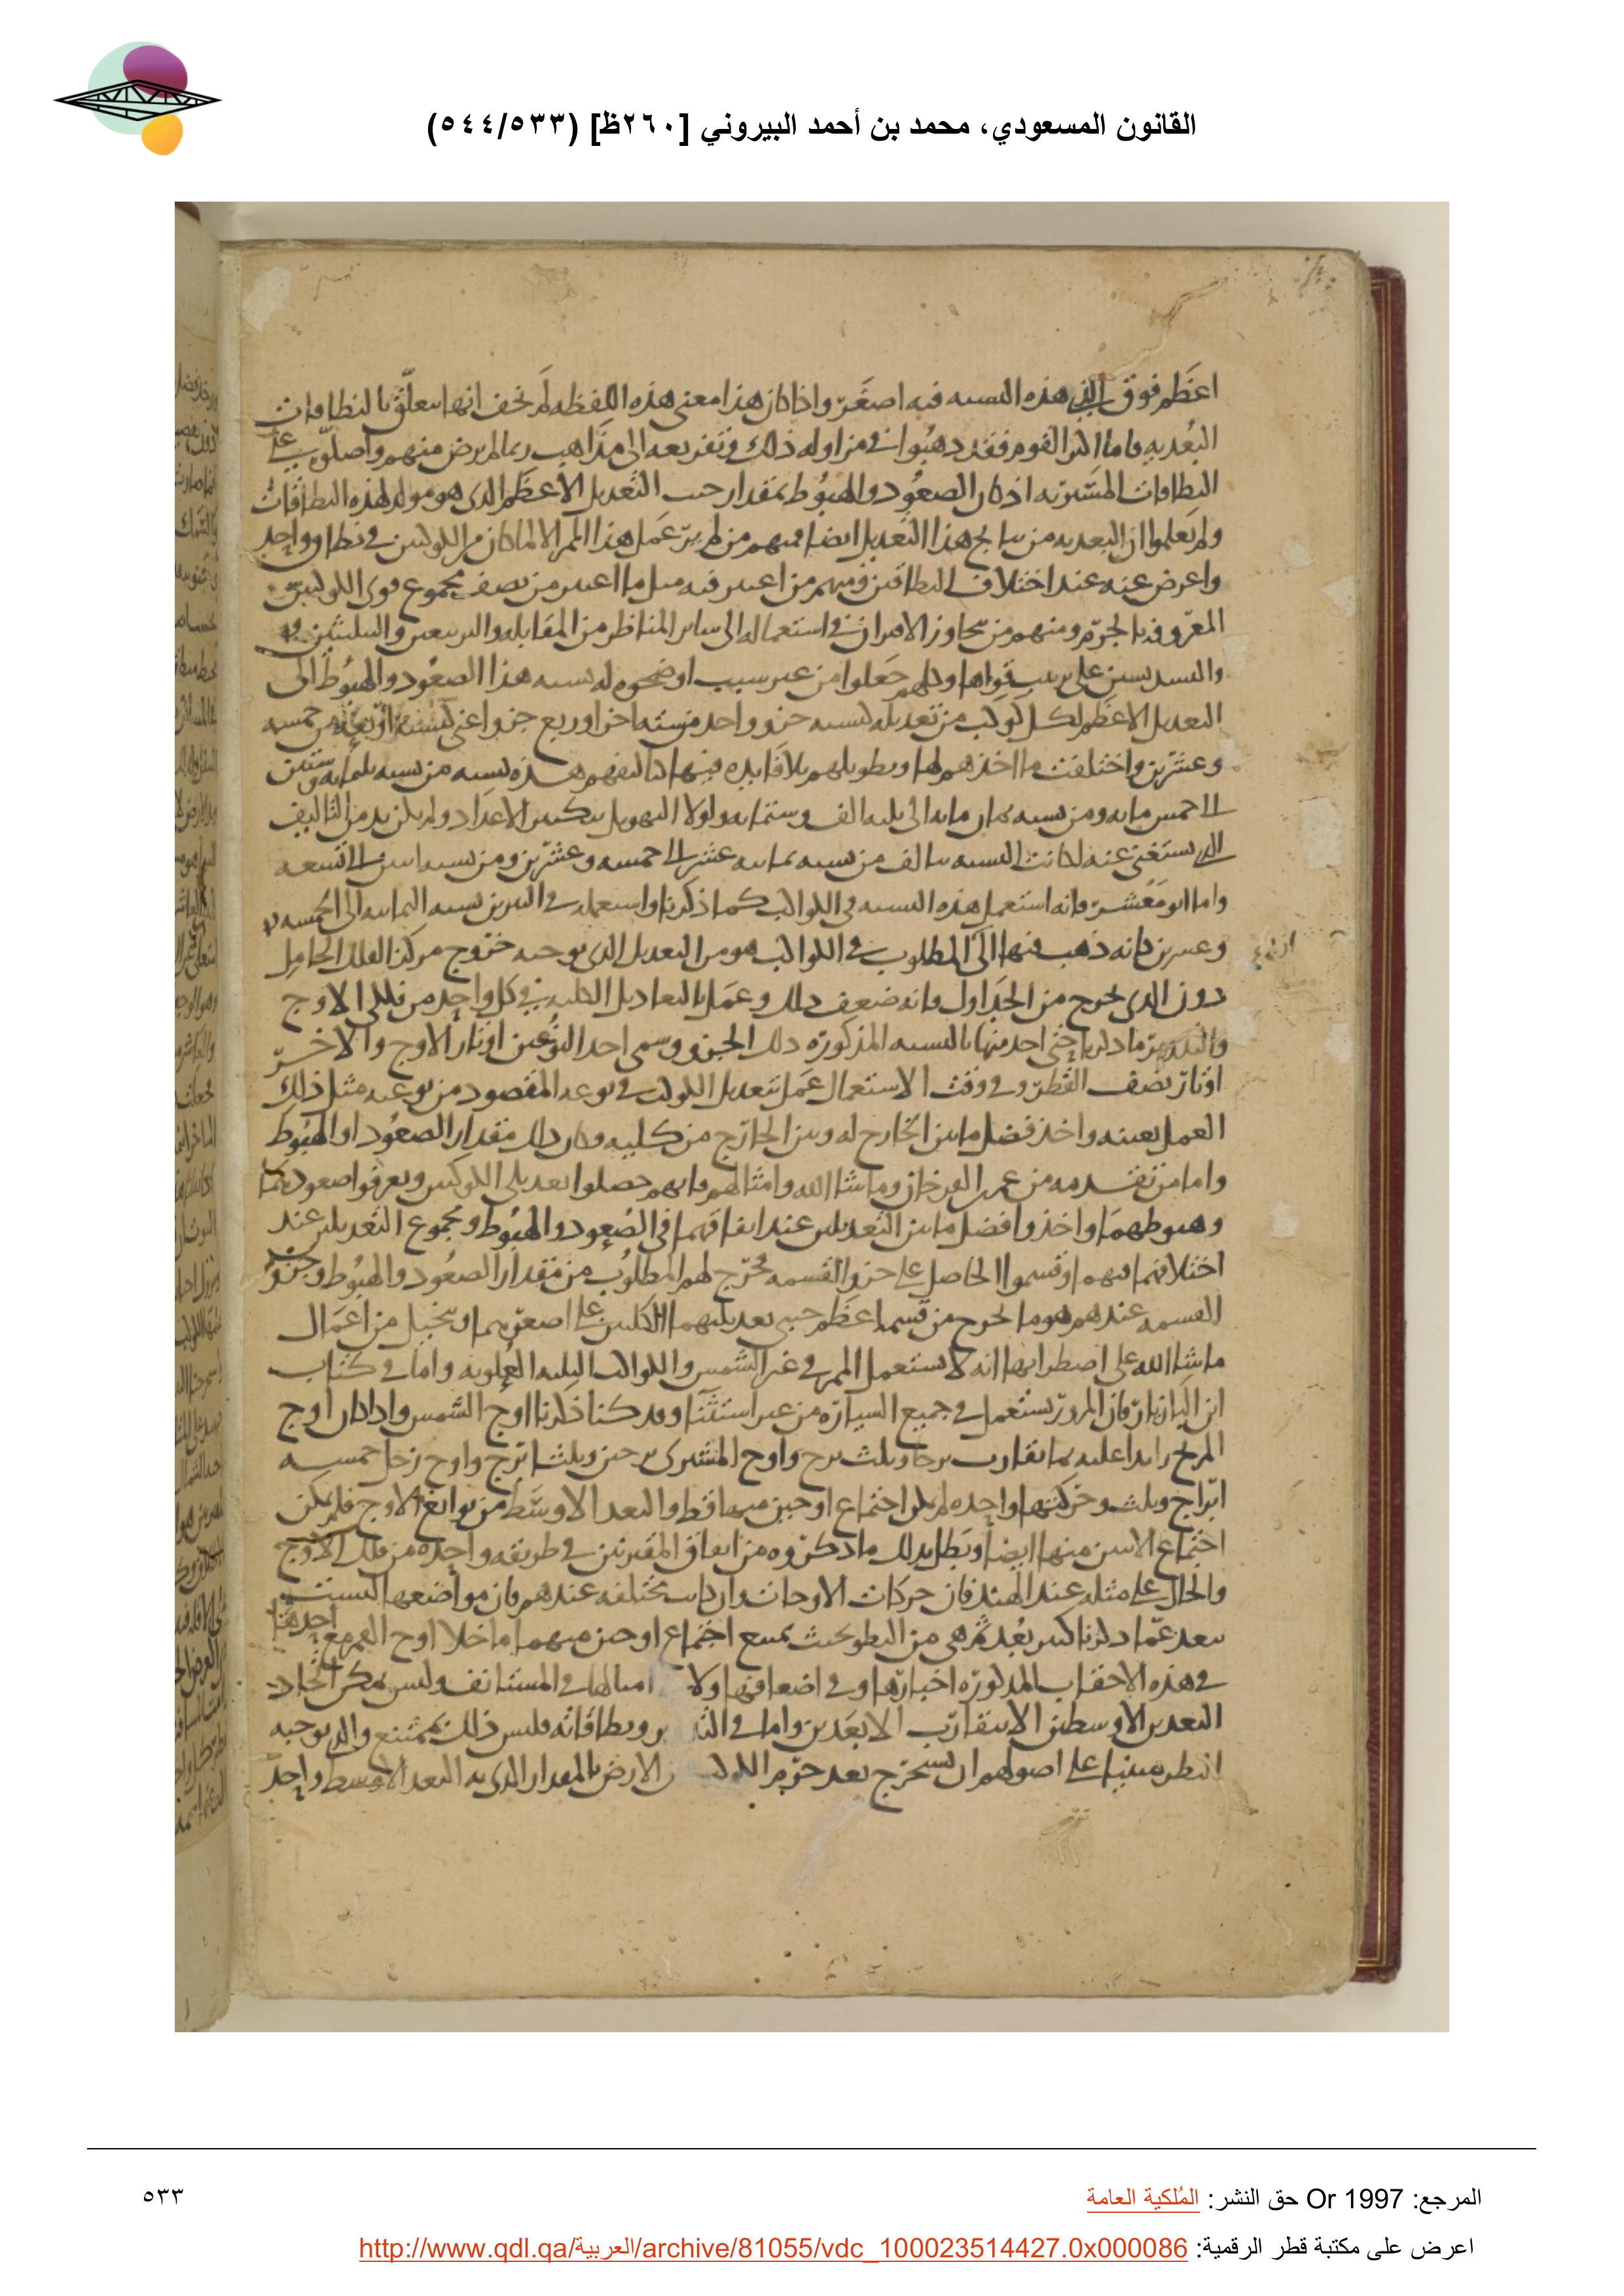 القانون المسعودي، محمد بن أحمد البيروني [٢٦٠ظ] (٥٤٤/٥٣٣)
اعظم فوق التى هذه النسبه فيه اصغر واذا كان هذا معنى هذه اللفظه لم تخف انها يتعلق بالنطاقات
البعديه فاما اكثر القوم فقد ذهبوا فى مزاوله ذلك وتفريعه الى مذاهب ربما لم يرض منهم واصلوه على
النطاقات المسيريه اذ كان الصعود والهبوط بمقدار حسب التعديل الاعظم الذى هو مولد لهذه النطاقات
ولم يعلموا ان البعديه من نتايج هذا التعديل ايضا فمنهم من لم ير عمل هذا الممر الا لما كان من الكوكبين فى نطاق واحد
واعرض عنه عند اختلاف النطاقين ومنهم من اعتبر فيه مثل ما اعتبر من نصف مجموع قوى الكوكبين
المعروفه بالجرم ومنهم من تجاوز الاقتران فى استعماله الى ساير المناظر من المقابله والتربيعين والتثليثين
والتسديسين على ترتيب قواها وكلهم جعلوا من غير سبب اوضحوه له نسبه هذا الصعود والهبوط الى
التعديل الاعظم لكل كوكب من تعديله كنسبه جزو واحد من سته اجزا وربع جزو اعنى كنسبه اربعه من خمسه
وعشرين واختلفت ماخذهم لها وتطويلهم بلا فايده فمنها تاليفهم هذه النسبه من نسبه ثلثمايه وستين
الى خمس مايه ومن نسبه ثمان مايه الى ثلثه الف وستمايه ولولا التهويل بتكثير الاعداد ولم يكن يد من التاليف
الذى يستغنى عنه لكانت النسبه تتالف من نسبه ثمانيه عشر الى خمسه وعشرين ومن نسبه اثنين الى التسعه
واما ابو معشر فانه استعمل هذه النسبه فى الكواكب كما ذكرنا واستعمله فى النيرين نسبه الثمانيه الى الخمسه
وعشرين فانه ذهب فيها الى المطلوب فى الكواكب هو من التعديل الذى يوجبه خروج مركز الفلك الحامل
دون الذى يخرج من الجداول فانه ضعف ذلك وعمل بالتعاديل الكليه فى كل واحد من فلكى الاوج
والتدوير ما ذكرنا حتى اخذ منها بالنسبه المذكوره ذلك الجزو وسمى احد النوعين اوتار الاوج والاخر
اوتار نصف القطر وفى وقت الاستعمال عمل بتعديل الكوكب فى نوعه المقصود من نوعيه مثل ذلك
العمل بعينه واخذ فضل ما بين الخارج له وبين الخارج من كليه وكان ذلك مقدار الصعود او الهبوط
واما من تقدمه من عمر بن الفرخان وما شا الله وامثالهم فانهم حصلوا تعديلى الكوكبين وتعرفوا صعودهما
وهبوطهما واخذوا فضل ما بين التعديلين عند اتفاقهما فى الصعود والهبوط ومجموع التعديلين عند
اختلافهما فيهما وقسموا الحاصل على جزو القسمه فخرج لهم المطلوب من مقدار الصعود والهبوط وجزو
القسمه عندهم هو ما يخرج من قسمه اعظم جيبى تعديليهما الكليين على اصغرهما ويتخيل من اعمال
ما شا الله على اضطرابها انه لا يستعمل الممر فى غير الشمس والكواكب الثلثه العلويه واما فى كتاب
ابن البازيار فان المرور يستعمل فى جميع السياره من غير استثنا وقد كنا ذكرنا اوج الشمس واذا كان اوج
المريخ زايدا عليه بما تقارب برجا وثلث برج واوج المشترى برجين وثلثا برج واوج زحل خمسه
ابراج وثلث وحركتها واحده لم يكن اجتماع اوجين منها قط والبعد الاوسط من توابع الاوج فلم يمكن
اجتماع الاثنين منها ايضا وبطل بذلك ما ذكروه من اتفاق المقترنين فى طريقه واحده من فلك الاوج
والحال على مثله عند الهند فان حركات الاوجات وان كانت مختلفه عندهم فان مواضعها ليست
تبعد عما ذكرنا كثير بعد ثم هى من البطو بحيث يمتنع اجتماع اوجين منهما ما خلا اوج القمر مع احدها
فى هذه الاحقاب المذكوره اخبارها وفى اضعافها ولا امثالها فى المستانف وليس يمكن اتحاد
البعدين الاوسطين الا بتقارب الابعدين واما فى التدوير ونطاقاته فليس ذلك بممتنع والذى يوجبه
النظر مبنيا على اصولهم ان يستخرج بعد جرم الكوكب من الارض بالمقدار الذى به البعد الاوسط واحد
المرجع: Or 1997 حق النشر: المُلكية العامة
٥٣٣
اعرض على مكتبة قطر الرقمية: http://www.qdl.qa/العربية/archive/81055/vdc_100023514427.0x000086